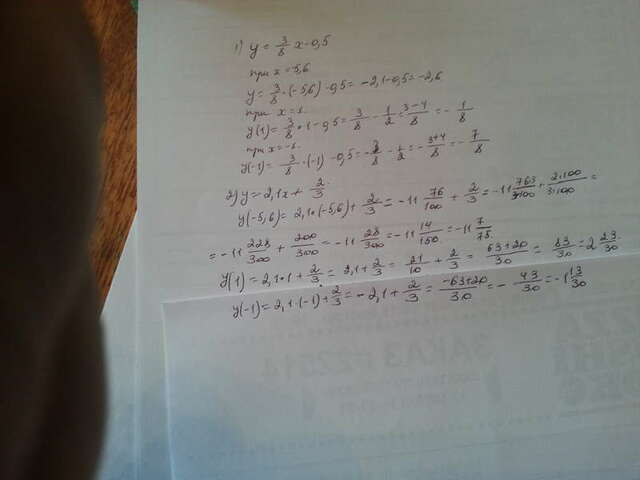 1) y = 3/8 x - 0,5
при x = -5,6
y = 3/8 · (-5,6) - 0,5 = -2,1 - 0,5 = -2,6
при x = 1
y(1) = 3/8 · 1 - 0,5 = 3/8 - 1/2 = 3-4/8 = - 1/8
при x = -1
y(-1) = 3/8 · (-1) - 0,5 = - 3/8 - 1/2 = - 3+4/8 = - 7/8
2) y = 2,1x + 2/3
y(-5,6) = 2,1 · (-5,6) + 2/3 = -11 76/100 + 2/3 = -11 76·3/3·100 + 2·100/3·100 =
= -11 228/300 + 200/300 = -11 28/300 = -11 14/150 = -11 7/75.
y(1) = 2,1 · 1 + 2/3 = 2,1 + 2/3 = 21/10 + 2/3 = 63+20/30 = 83/30 = 2 23/30.
y(-1) = 2,1 · (-1) + 2/3 = -2,1 + 2/3 = -63+20/30 = - 43/30 = -1 13/30
ЗАКАЗ #22014